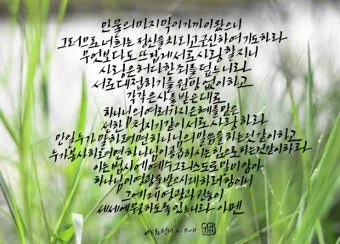 만물의 마지막이 가까이 왔으니
그러므로 너희는 정신을 차리고 근신하여 기도하라
무엇보다도 뜨겁게 서로 사랑할지니
사랑은 허다한 죄를 덮느니라
서로 대접하기를 원망 없이 하고
각각 은사를 받은대로
하나님의 여러가지 은혜를 맡은
선한 청지기 같이 서로 봉사하라
만일 누가 말하려면 하나님의 말씀을 하는 것 같이 하고
누가 봉사하려면 하나님이 공급하시는 힘으로 하는 것 같이 하라
이는 범사에 예수 그리스도로 말미암아
하나님이 영광을 받으시게 하려 함이니
그에게 영광과 권능이
세세에 무궁하도록 있느니라 아멘
베드로전서 4:7-11